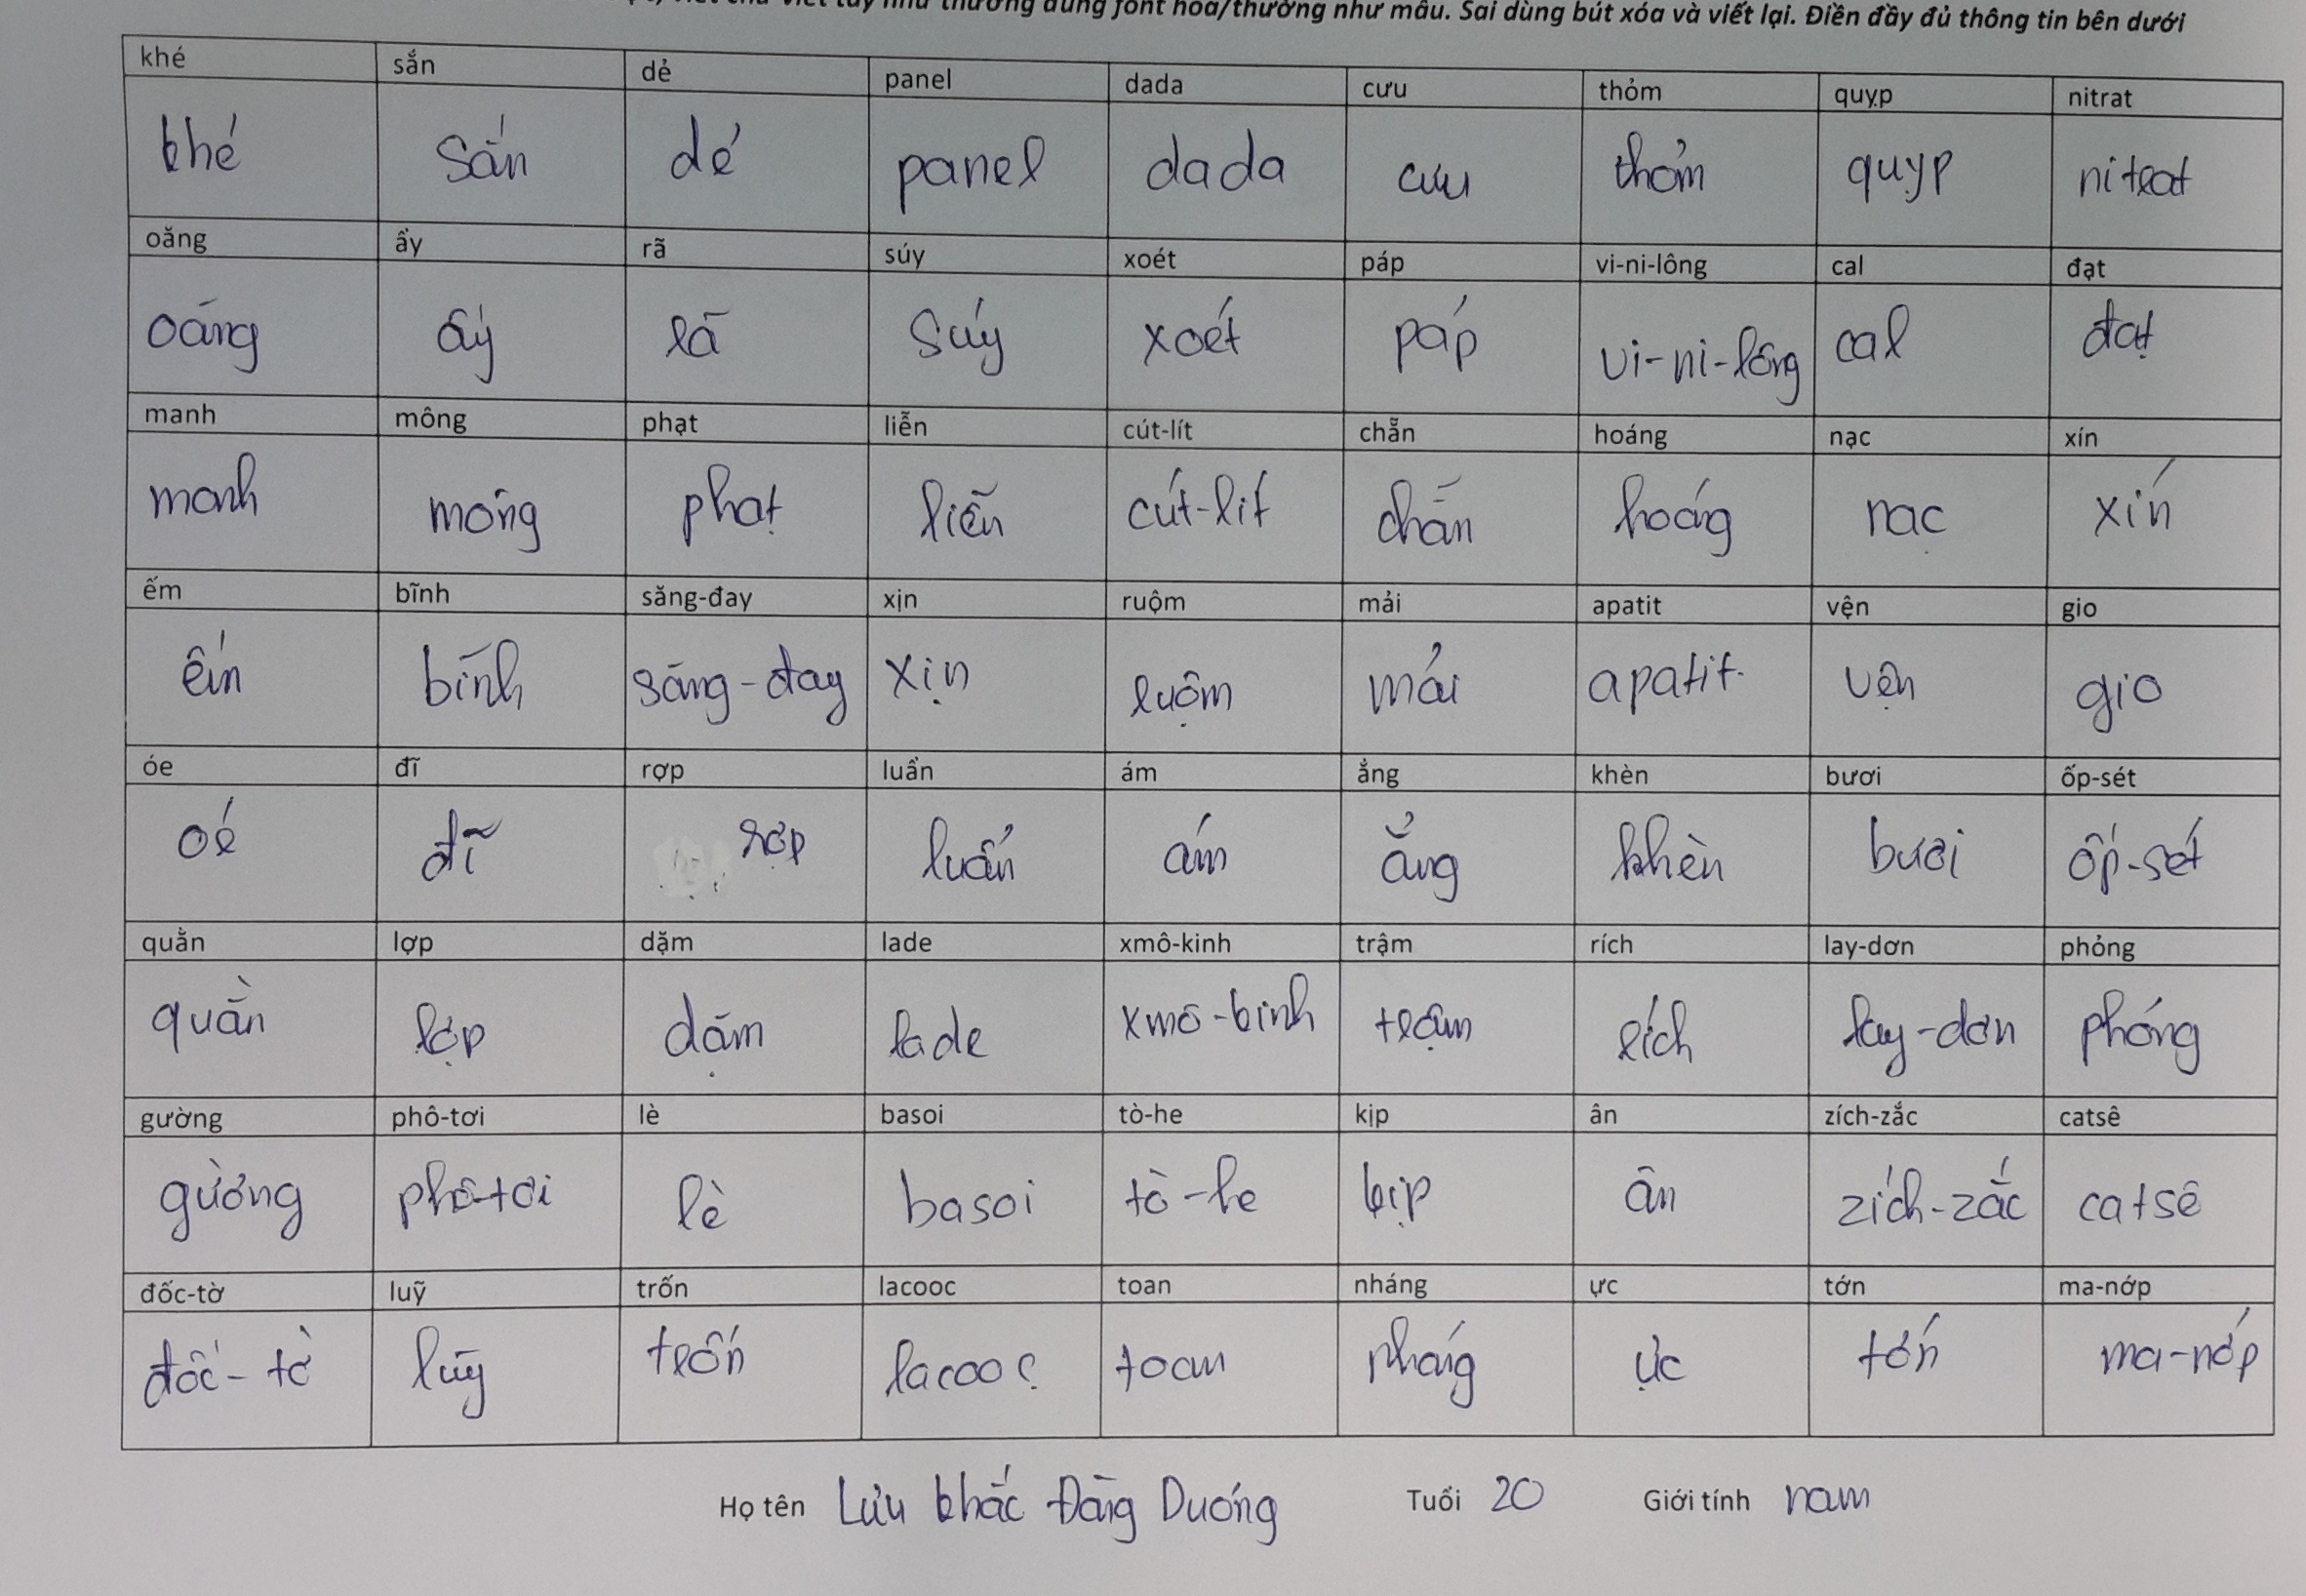 thường dùng font hoa/thường như mẫu. Sai dùng bút xóa và viết lại. Điền đầy đủ thông tin bên dưới
khé sắn dẻ panel dada cưu thỏm quỵp nitrat
khé sắn dẻ panel dada cưu thỏm quỵp nitrat
oăng ẩy rã súy xoét páp vi-ni-lông cal đạt
oăng ẩy rã súy xoét páp vi-ni-lông cal đạt
manh mông phạt liễn cút-lít chẵn hoáng nạc xín
manh mông phạt liễn cút-lít chẵn hoáng nạc xín
ếm bĩnh săng-đay xịn ruộm mải apatit vện gio
ếm bĩnh săng-đay xịn ruộm mải apatit vện gio
óe đĩ rợp luẩn ám ẳng khèn bươi ốp-sét
oé đĩ rợp luẩn ám ẳng khèn bươi ốp-sét
quằn lợp dặm lade xmô-kinh trậm rích lay-dơn phỏng
quằn lợp dặm lade xmô-kinh trậm rích lay-dơn phỏng
gường phô-tơi lè basoi tò-he kịp ân zích-zắc catsê
gường phô-tơi lè basoi tò-he kịp ân zích-zắc catsê
đốc-tờ luỹ trốn lacooc toan nháng ực tớn ma-nớp
đốc-tờ luỹ trốn lacooc toan nháng ực tớn ma-nớp
Họ tên Lưu Khắc Đăng Dương Tuổi 20 Giới tính nam